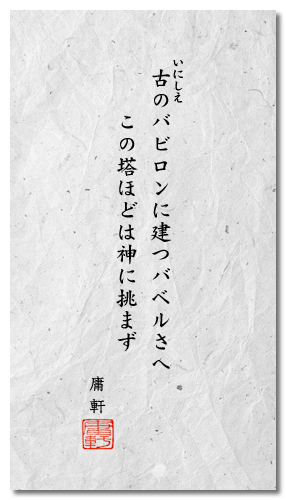 いにしえ
古のバビロンに建つバベルさへ
この塔ほどは神に挑まず
庸軒
庸軒